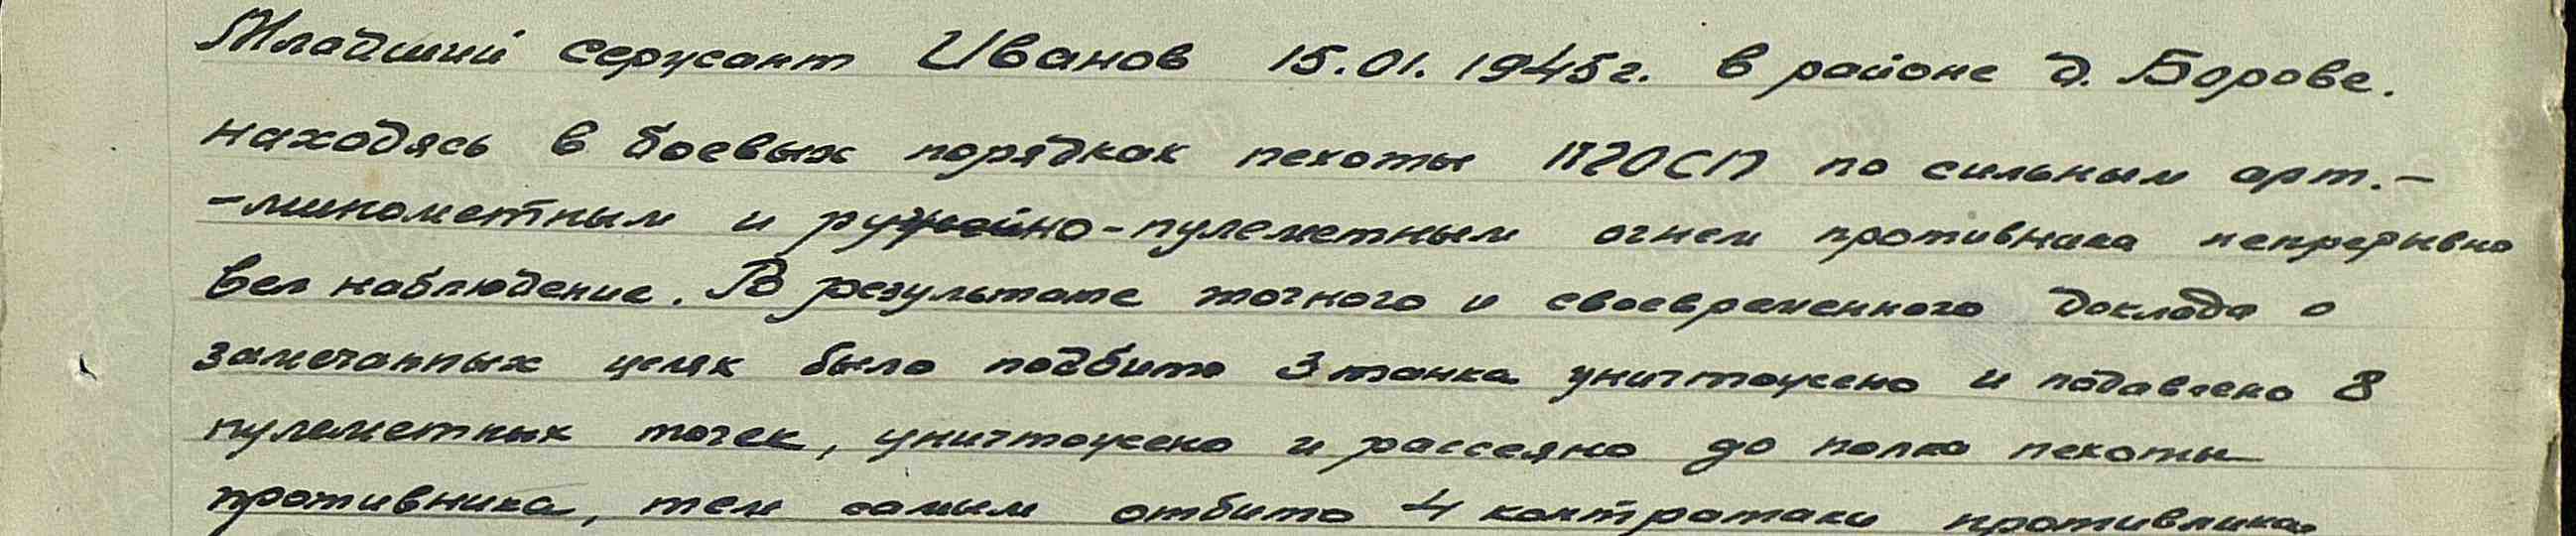 Младший сержант Иванов 15.01.1945г. в районе д. Борове.
находясь в боевых порядках пехоты 1120СП по сильным арт.-
-минометным и ружейно-пулеметным огнем противника непрерывно
вел наблюдение. В результате точного и своевременного доклада о
замечанных целях было подбито 3 танка уничтожено и подавлено 8
пулеметных точек, уничтожено и рассеяно до полка пехоты
противника, тем самым отбито 4 контратаки противника